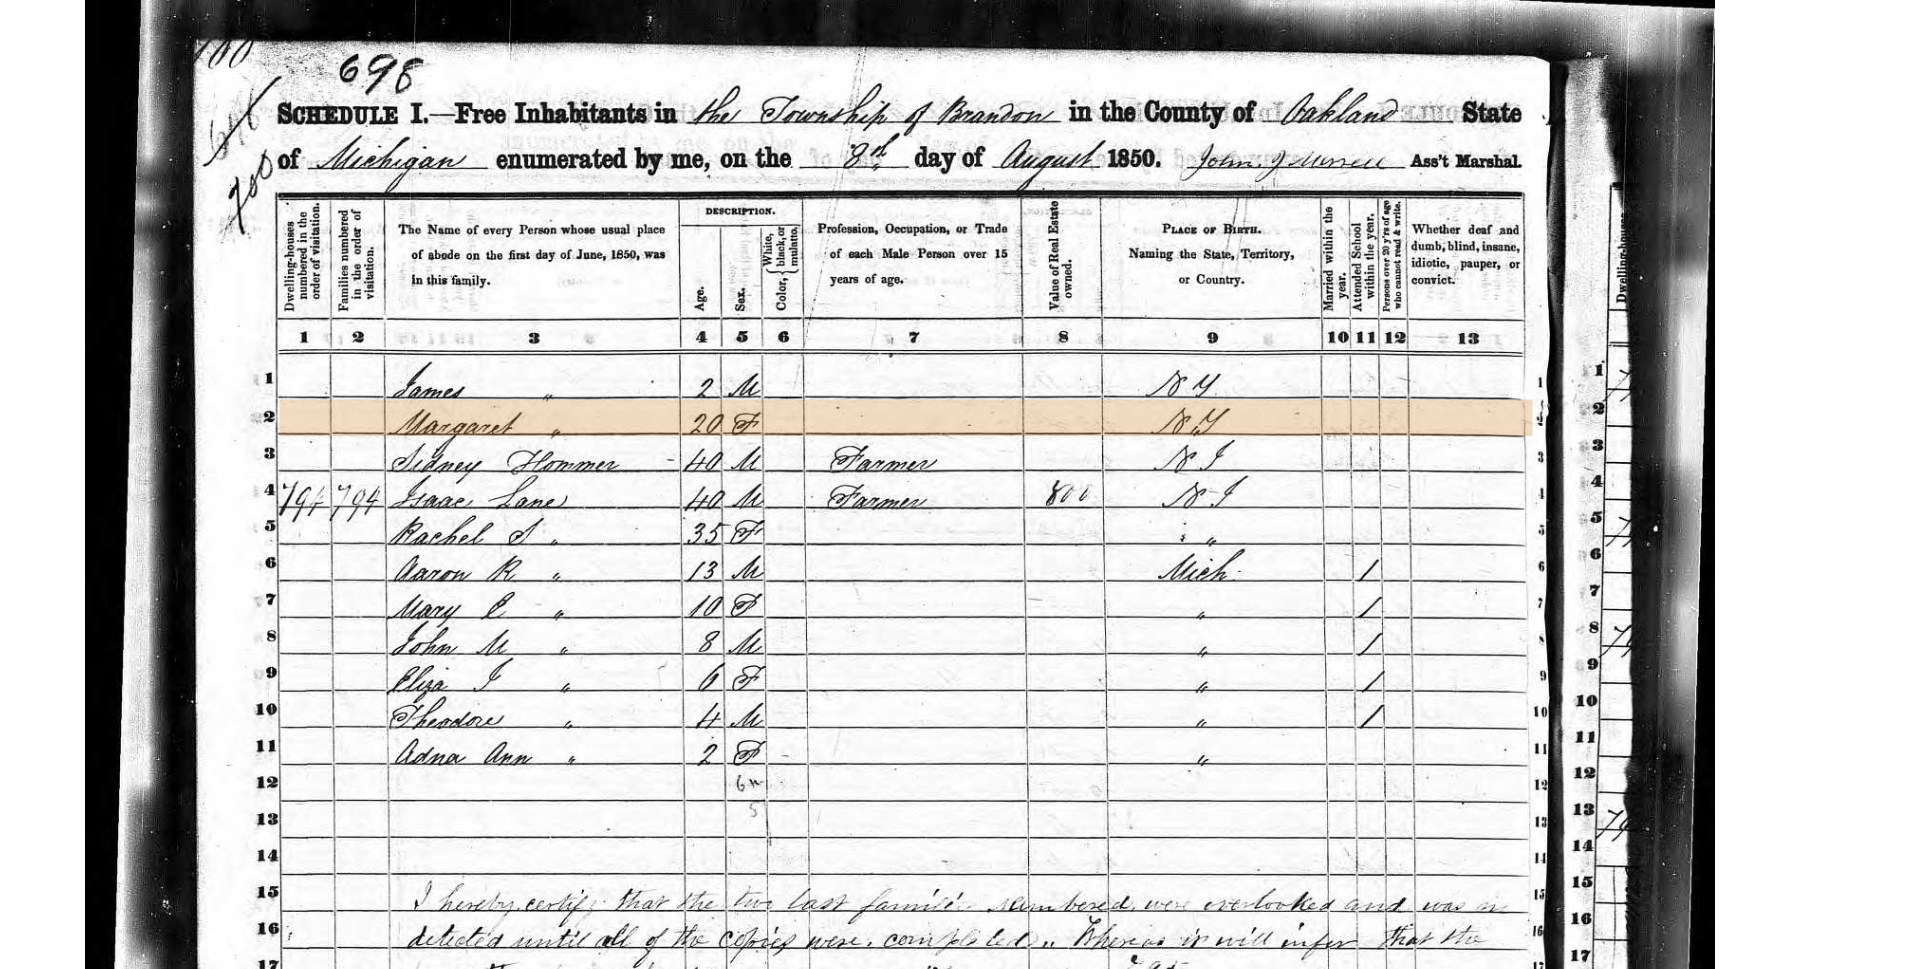 100
698
648
700
SCHEDULE I.—Free Inhabitants in the Township of Brandon in the County of Oakland State
of Michigan enumerated by me, on the 3d day of August 1850. John J Ass't Marshal.
Dwelling-houses numbered in the order of visitation.
Families numbered in the order of visitation.
The Name of every Person whose usual place of abode on the first day of June, 1850, was in this family.
DESCRIPTION.
Age.
Sex.
Color, { White, black, or mulatto.
Profession, Occupation, or Trade of each Male Person over 15 years of age.
Value of Real Estate owned.
PLACE OF BIRTH. Naming the State, Territory, or Country.
Married within the year.
Attended School within the year.
Persons over 20 y'rs of age who cannot read & write.
Whether deaf and dumb, blind, insane, idiotic, pauper, or convict.
Dwelling-houses
1 2 3 4 5 6 7 8 9 10 11 12 13
1 James " 2 M N Y 1 1
2 Margaret " 20 F N Y 2
3 Sidney Hommer - 40 M Farmer N J 3 3
4 794 794 Isaac Lane 40 M Farmer 800 N J 4 4
5 Rachel S " 35 F " " 5 5
6 Aaron R " 13 M Mich 1 6 6
7 Mary E " 10 F " 1 7 7
8 John M " 8 M " 1 8 8
9 Eliza J " 6 F " 1 9 9
10 Theodore " 4 M " 1 10 10
11 Adna Ann " 2 F " 11 11
12 6 m 12 12
13 5 13 13
14 14 14
15 I hereby certify that the two last families numbered were overlooked and was 15 15
16 detected until all of the copies were completed " Whereas it will infer that the 16 16
17 17 17